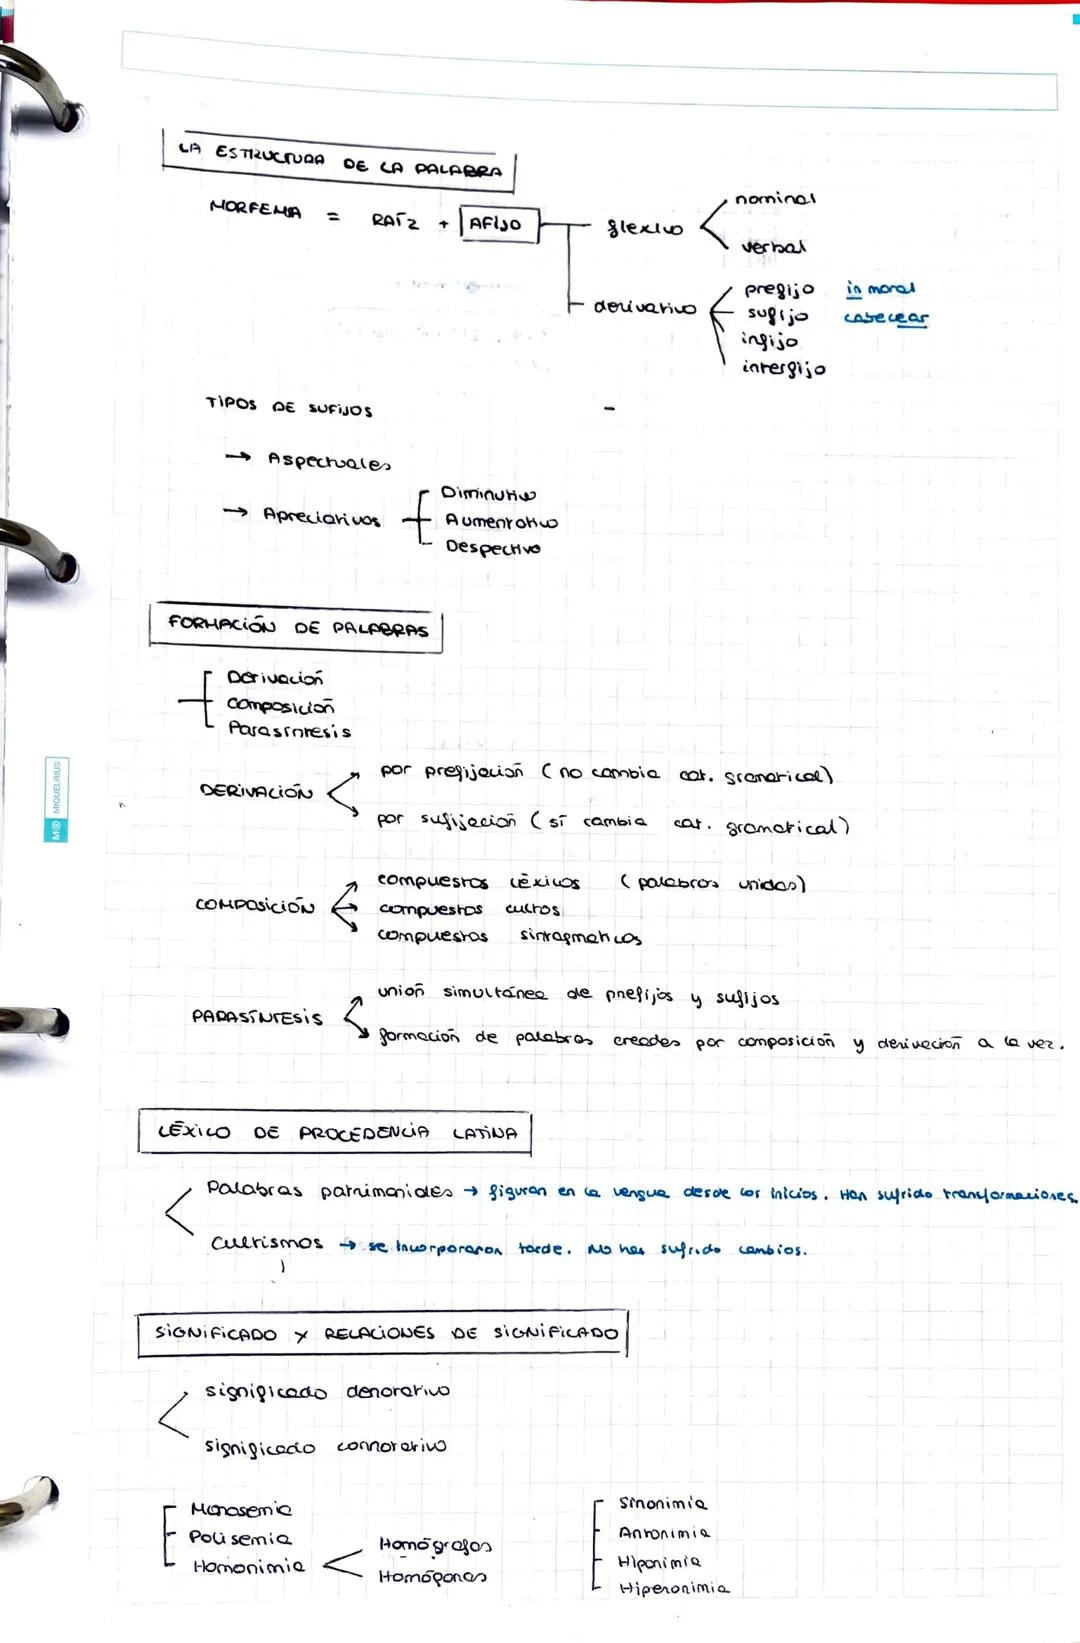 LA ESTRUCTURA DE LA PALABRA
MORFEMA = RAÍZ + AFIJO
flexivo
nominal
verbal
derivativo
prefijo in moral
sufijo cabecear
infijo
interfijo
TIPOS DE SUFIJOS
→ Aspectuales
→ Apreciativos
Diminutivo
Aumentativo
Despectivo
FORMACIÓN DE PALABRAS
Derivación
composición
Parasíntesis
DERIVACIÓN
por prefijación (no cambia cat. gramatical)
por sufijación (sí cambia cat. gramatical)
COMPOSICIÓN
compuestos léxicos (palabras unidas)
compuestos cultos
compuestos sintagmaticos
PARASÍNTESIS
unión simultánea de prefijos y sufijos
formación de palabras creadas por composición y derivación a la vez.
LÉXICO DE PROCEDENCIA LATINA
Palabras patrimoniales → figuran en la lengua desde los inicios. Han sufrido transformaciones.
Cultismos → se incorporaron tarde. No han sufrido cambios.
SIGNIFICADO Y RELACIONES DE SIGNIFICADO
significado denotativo
significado connotativo
Monosemia
Polisemia
Homonimia
Homógrafos
Homófonas
Sinonimia
Antonimia
Hiponimia
Hiperonimia
M® MIQUELRIUS